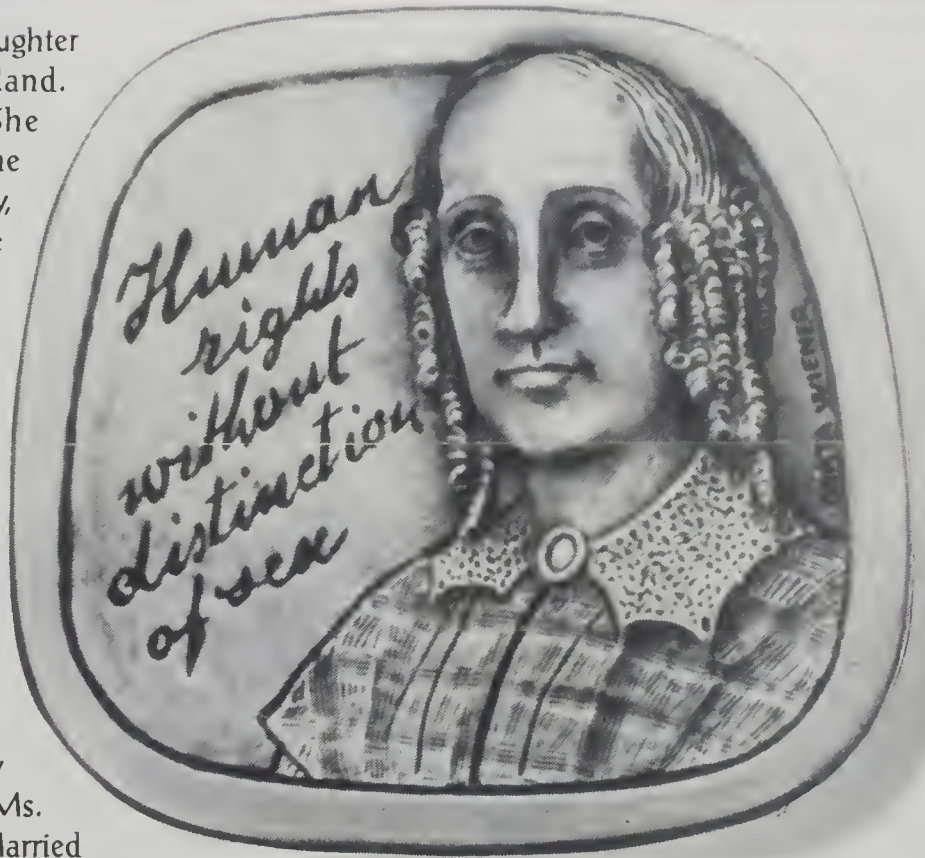 ughter
and.
She
ne
y,
Human
rights
without
distinction
of sex
Ms.
Married